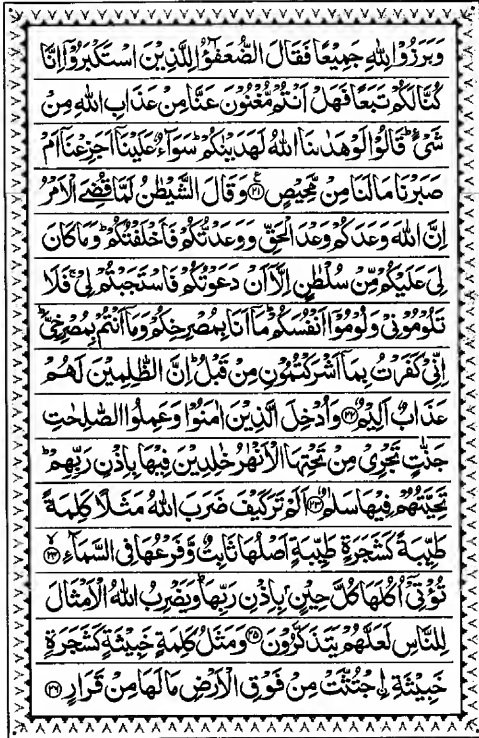 وَبَرَزُوْا لِلّٰهِ جَمِيْعًا فَقَالَ الضُّعَفٰٓؤُا لِلَّذِيْنَ اسْتَكْبَرُوْۤا اِنَّا
كُنَّا لَكُمْ تَبَعًا فَهَلْ اَنْتُمْ مُّغْنُوْنَ عَنَّا مِنْ عَذَابِ اللّٰهِ مِنْ
شَيْءٍ ؕ قَالُوْا لَوْ هَدٰىنَا اللّٰهُ لَهَدَيْنٰكُمْ ؕ سَوَآءٌ عَلَيْنَاۤ اَجَزِعْنَاۤ اَمْ
صَبَرْنَا مَا لَنَا مِنْ مَّحِيْصٍ ﴿۲۱﴾ وَقَالَ الشَّيْطٰنُ لَمَّا قُضِيَ الْاَمْرُ
اِنَّ اللّٰهَ وَعَدَكُمْ وَعْدَ الْحَقِّ وَوَعَدْتُّكُمْ فَاَخْلَفْتُكُمْ ؕ وَمَا كَانَ
لِيَ عَلَيْكُمْ مِّنْ سُلْطٰنٍ اِلَّاۤ اَنْ دَعَوْتُكُمْ فَاسْتَجَبْتُمْ لِيْ ۚ فَلَا
تَلُوْمُوْنِيْ وَلُوْمُوْۤا اَنْفُسَكُمْ ؕ مَاۤ اَنَا بِمُصْرِخِكُمْ وَمَاۤ اَنْتُمْ بِمُصْرِخِيَّ ؕ
اِنِّيْ كَفَرْتُ بِمَاۤ اَشْرَكْتُمُوْنِ مِنْ قَبْلُ ؕ اِنَّ الظّٰلِمِيْنَ لَهُمْ
عَذَابٌ اَلِيْمٌ ﴿۲۲﴾ وَاُدْخِلَ الَّذِيْنَ اٰمَنُوْا وَعَمِلُوا الصّٰلِحٰتِ
جَنّٰتٍ تَجْرِيْ مِنْ تَحْتِهَا الْاَنْهٰرُ خٰلِدِيْنَ فِيْهَا بِاِذْنِ رَبِّهِمْ ؕ
تَحِيَّتُهُمْ فِيْهَا سَلٰمٌ ﴿۲۳﴾ اَلَمْ تَرَ كَيْفَ ضَرَبَ اللّٰهُ مَثَلًا كَلِمَةً
طَيِّبَةً كَشَجَرَةٍ طَيِّبَةٍ اَصْلُهَا ثَابِتٌ وَّفَرْعُهَا فِي السَّمَآءِ ﴿۲۴﴾
تُؤْتِيْۤ اُكُلَهَا كُلَّ حِيْنٍۭ بِاِذْنِ رَبِّهَا ؕ وَيَضْرِبُ اللّٰهُ الْاَمْثَالَ
لِلنَّاسِ لَعَلَّهُمْ يَتَذَكَّرُوْنَ ﴿۲۵﴾ وَمَثَلُ كَلِمَةٍ خَبِيْثَةٍ كَشَجَرَةٍ
خَبِيْثَةِ ۨاجْتُثَّتْ مِنْ فَوْقِ الْاَرْضِ مَا لَهَا مِنْ قَرَارٍ ﴿۲۶﴾